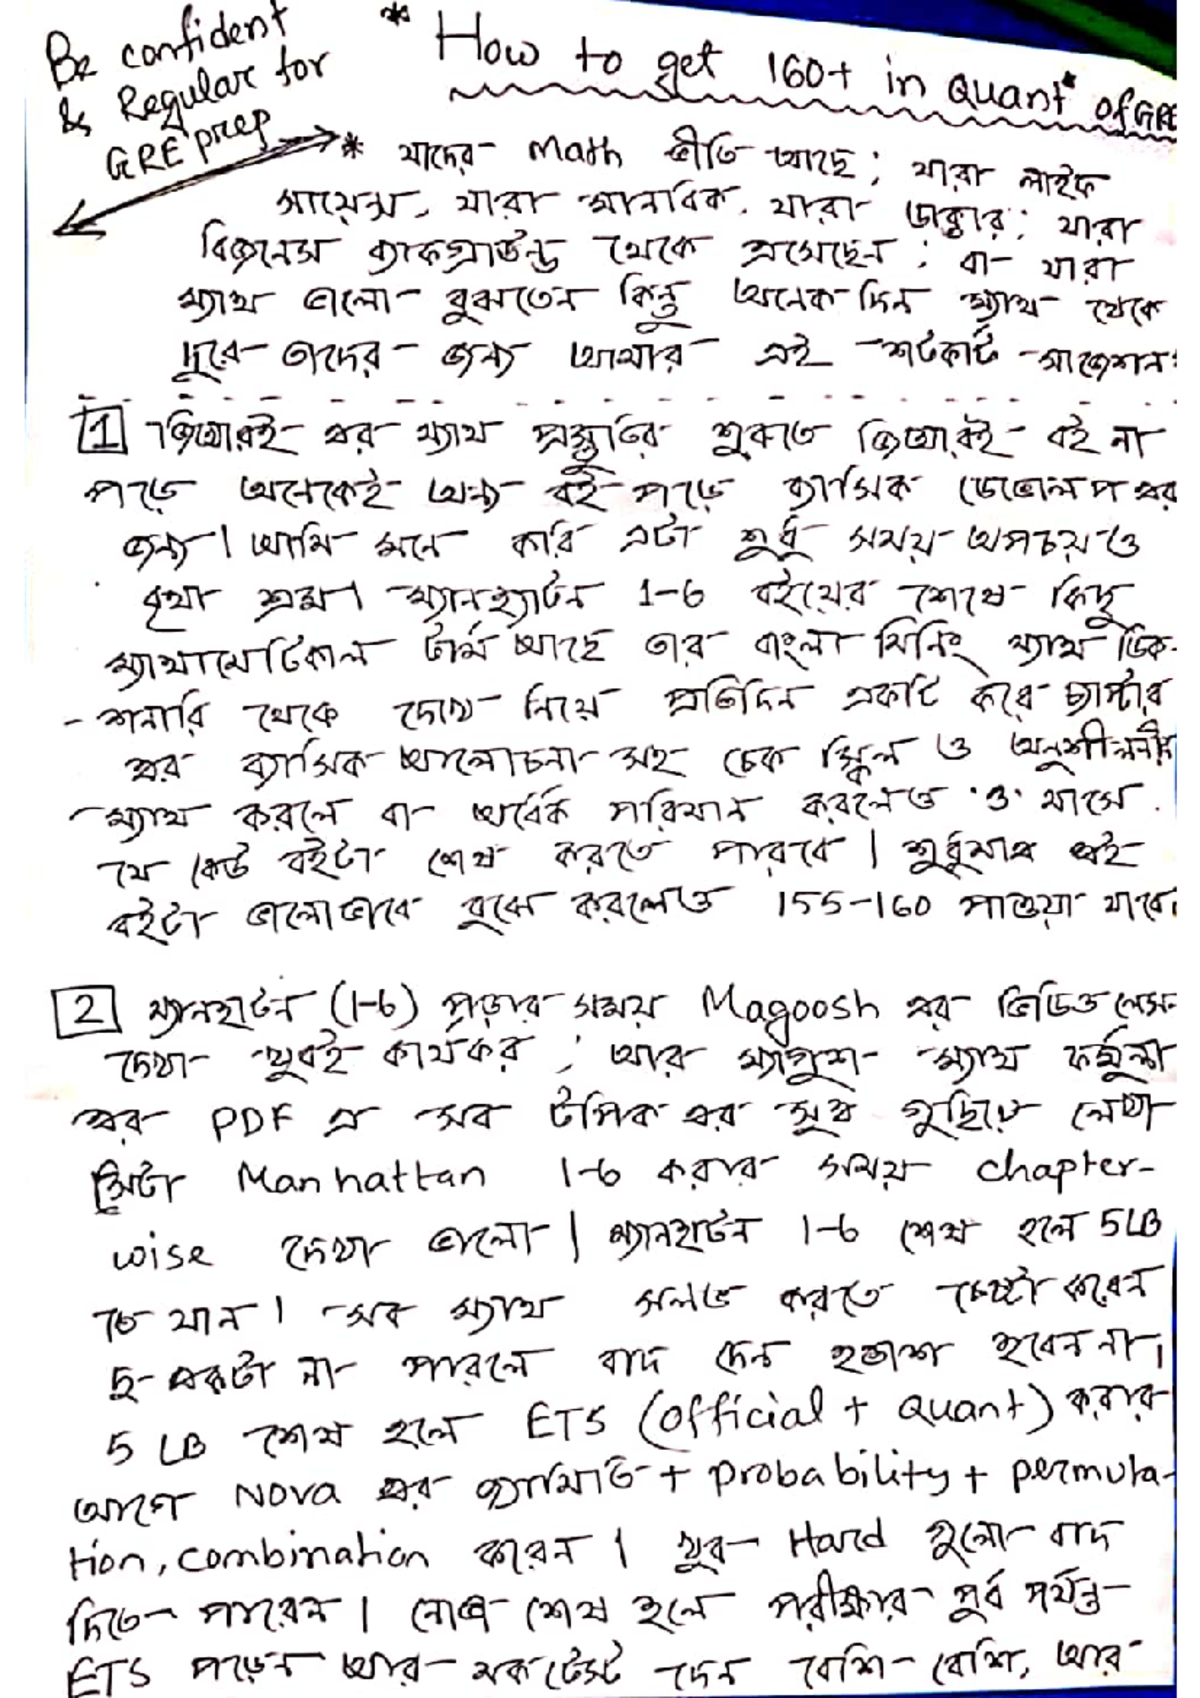 Be confident
& Regular for
GRE prep
* How to get 160+ in Quant* of GRE
* যাদের Math ভীতি আছে; যারা লাইফ
সায়েন্স, যারা মানবিক, যারা ডাক্তার; যারা
বিজনেস ব্যাকগ্রাউন্ড থেকে এসেছেন; বা যারা
ম্যাথ ভালো বুঝতেন কিন্তু অনেক দিন ম্যাথ থেকে
দূরে তাদের জন্য আমার এই শর্টকার্ট সাজেশন:
1 জিআরই এর ম্যাথ প্রস্তুতির শুরুতে জিআরই বই না
পড়ে অনেকেই অন্য বই পড়ে ব্যাসিক ডেভেলপ এর
জন্য। আমি মনে করি এটা শুধু সময় অপচয় ও
বৃথা শ্রম। ম্যানহ্যাটন 1-6 বইয়ের শেষে কিছু
ম্যাথামেটিকাল টার্ম আছে তার বাংলা মিনিং ম্যাথ ডিক-
-শনারি থেকে দেখে নিয়ে প্রতিদিন একটি করে চ্যাপ্টার
এর ব্যাসিক আলোচনা সহ চেক স্কিল ও অনুশীলনীর
ম্যাথ করলে বা অর্ধেক পরিমান করলেও '৩' মাসে
যে কেউ বইটা শেষ করতে পারবে। শুধুমাত্র এই
বইটা ভালোভাবে বুঝে করলেও 155-160 পাওয়া যাবে।
2 ম্যানহাটন (1-6) পড়ার সময় Magoosh এর ভিডিও লেসন
দেখা খুবই কার্যকর; আর ম্যাগুশ ম্যাথ ফর্মুলা
এর PDF এ সব টপিক এর সূত্র গুছিয়ে লেখা
সেটা Manhattan 1-6 করার সময় chapter-
wise দেখা ভালো। ম্যানহাটন 1-6 শেষ হলে 5LB
তে যান। সব ম্যাথ সলভ করতে চেষ্টা করবেন
দু-একটা না পারলে বাদ দেন হতাশ হবেন না।
5 LB শেষ হলে ETS (official + Quant) করার
আগে Nova এর জ্যামিতি + probability + permuta-
tion, combination করেন। খুব Hard গুলো বাদ
দিতে পারেন। নোভা শেষ হলে পরীক্ষার পূর্ব পর্যন্ত
ETS পড়েন আর মক টেস্ট দেন বেশি বেশি, আর